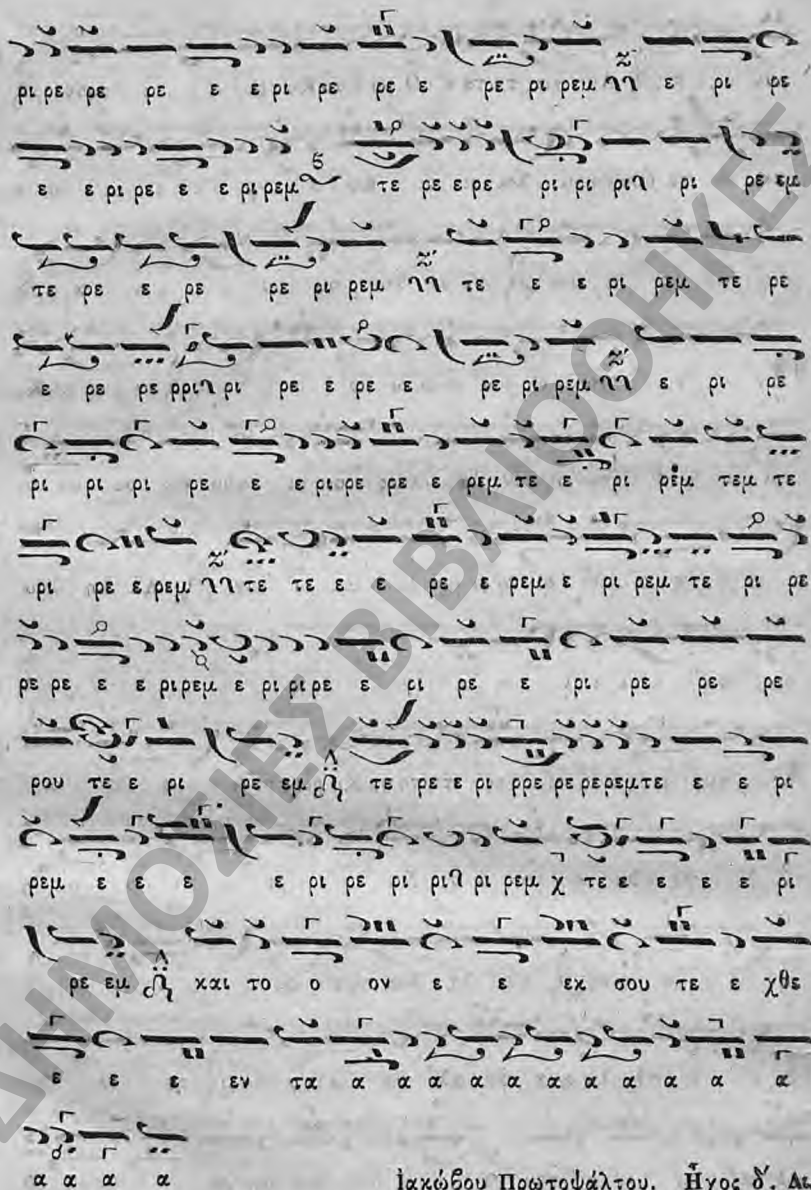 ρι ρε ρε ρε ε ε ρι ρε ρε ε ρε ρι ρεμ ε ρι ρε
ε ε ρι ρε ε ε ρι ρεμ τε ρε ε ρε ρι ρι ρι ρι ρε εμ
τε ρε ε ρε ρε ρι ρεμ τε ε ε ρι ρεμ τε ρε
ε ρε ρε ρρι ρι ρε ε ρε ε ρε ρι ρεμ ε ρι ρε
ρι ρι ρι ρε ε ε ρι ρε ρε ε ρεμ τε ε ρι ρεμ τεμ τε
ρι ρε ε ρεμ τε τε ε ε ρε ε ρεμ ε ρι ρεμ τε ρι ρε
ρε ρε ε ε ρι ρεμ ε ρι ρι ρε ε ρι ρε ε ρι ρε ρε ρε
ρου τε ε ρι ρε εμ τε ρε ε ρι ρρε ρε ρε ρεμ τε ε ε ρι
ρεμ ε ε ε ε ρι ρε ρι ρι ρι ρεμ χ τε ε ε ε ε ρι
ρε εμ και το ο ον ε ε εκ σου τε ε χθε
ε ε ε εν τα α α α α α α α α α α α
α α α α
Ἰακώβου Πρωτοψάλτου. Ἦχος δ΄.
ΔΗΜΟΣΙΕΣ ΒΙΒΛΙΟΘΗΚΕΣ